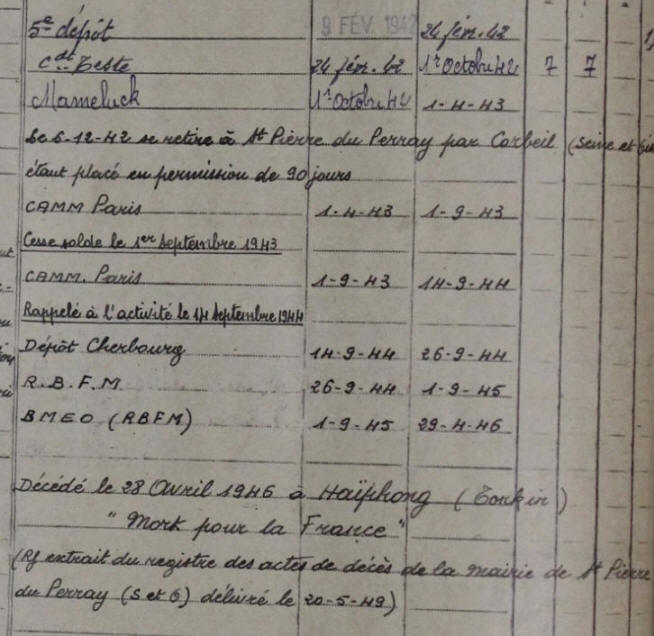 5e dépôt 9 FÉV. 1942 24 fév. 42
Cdt Teste 24 fév. 42 1er Octobre 42 7 7
Mameluck 1er Octobre 42 1-4-43
Le 6-12-42 se retire à St Pierre du Perray par Corbeil (Seine et
étant placé en permission de 90 jours
CAMM Paris 1-4-43 1-9-43
Cesse solde le 1er Septembre 1943
CAMM. Paris 1-9-43 14-9-44
Rappelé à l'activité le 14 Septembre 1944
Dépôt Cherbourg 14-9-44 26-9-44
R.B.F.M 26-9-44 1-9-45
BMEO (RBFM) 1-9-45 29-4-46
Décédé le 28 Avril 1946 à Haïphong (Tonkin)
"Mort pour la France"
(Rf extrait du registre des actes de décès de la mairie de St Pierre
du Perray (S et O) délivré le 20-5-49)